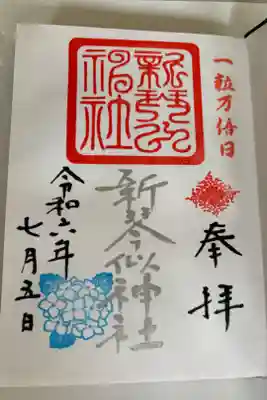 一粒万倍日
奉拝
新琴似
神社
新琴似神社
令和六年
七月五日